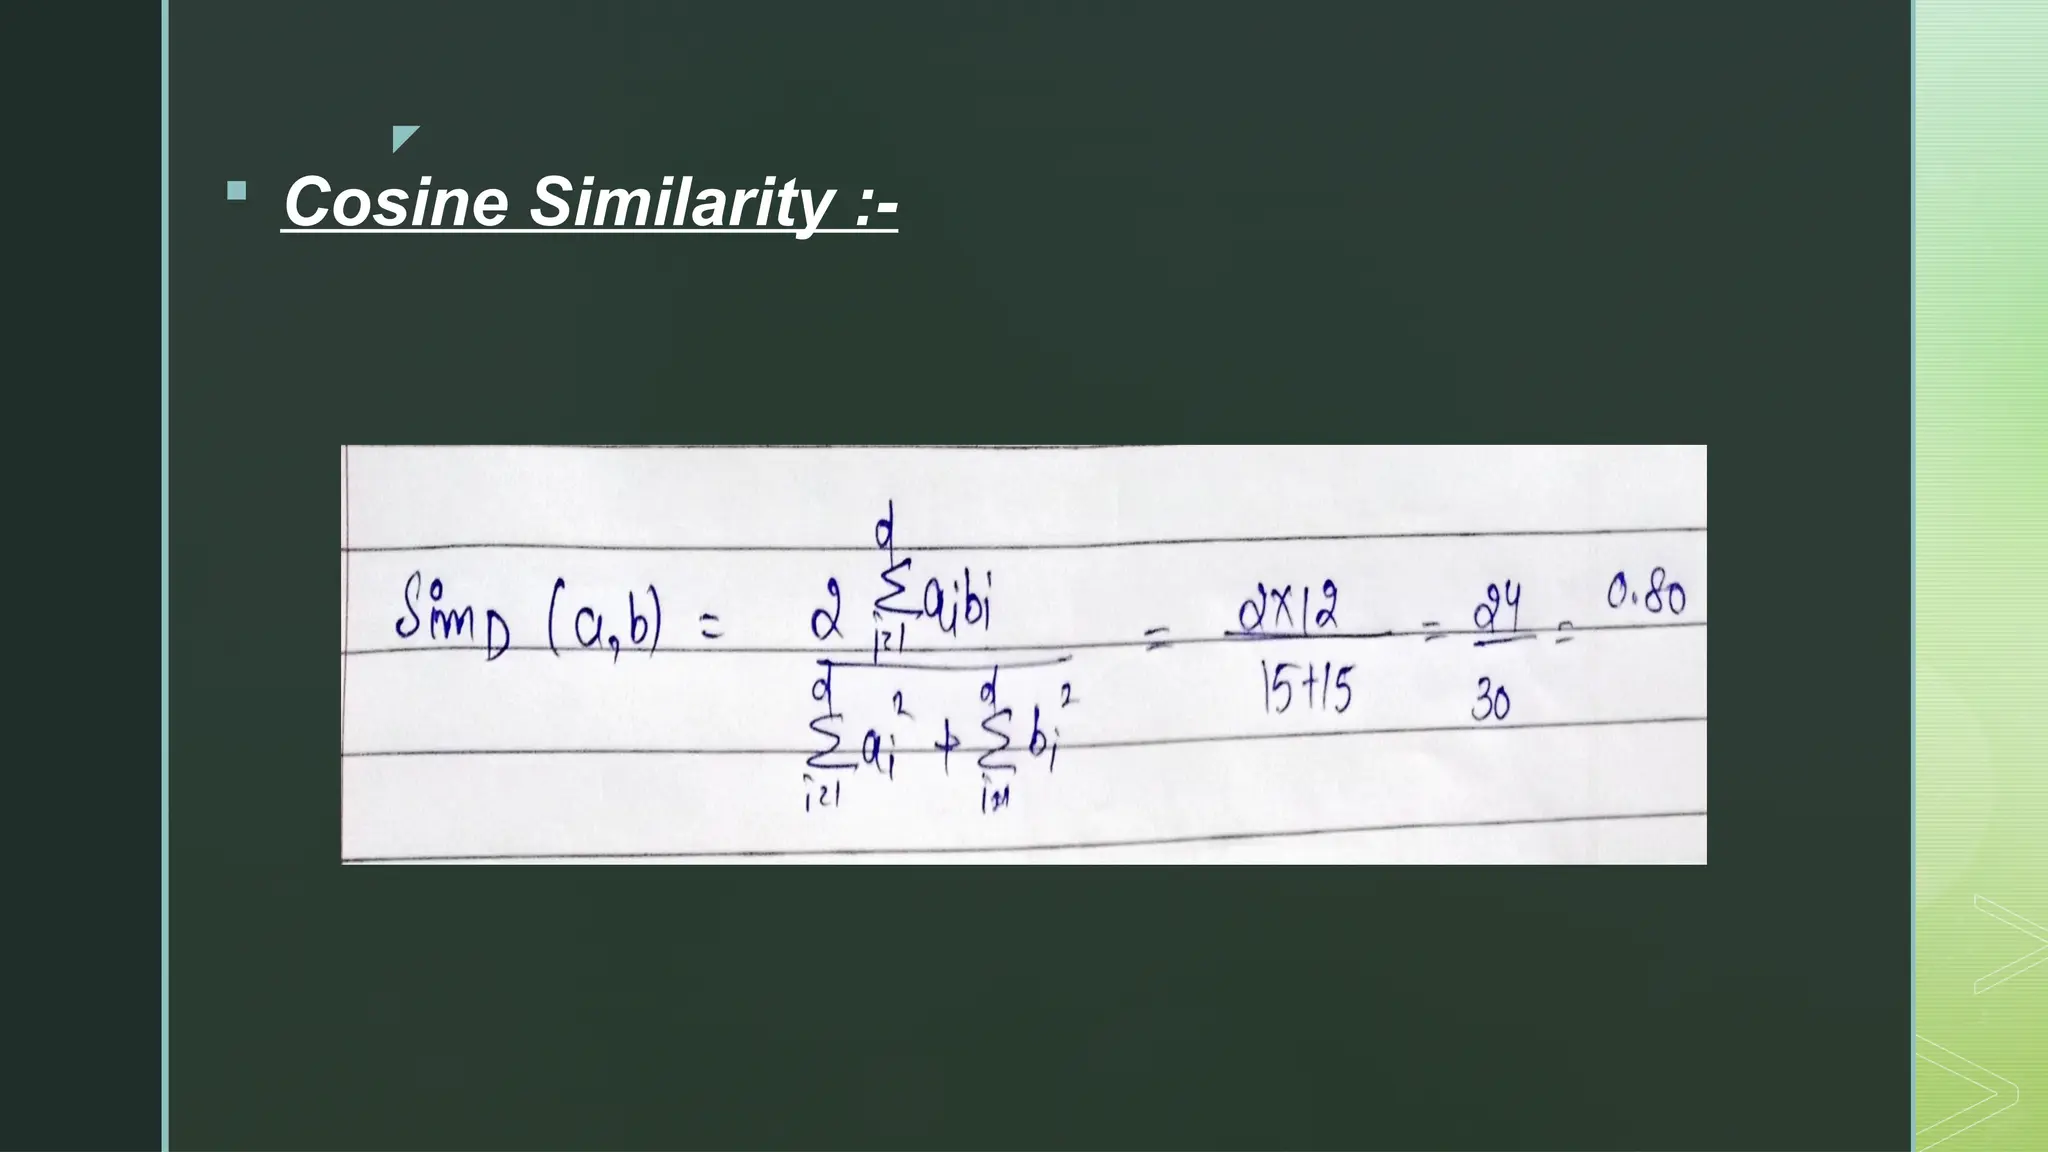 Cosine Similarity :-
Sim_D (a,b) = \frac{2 \sum_{i=1}^{d} a_i b_i}{\sum_{i=1}^{d} a_i^2 + \sum_{i=1}^{d} b_i^2} = \frac{2×12}{15+15} = \frac{24}{30} = 0.80